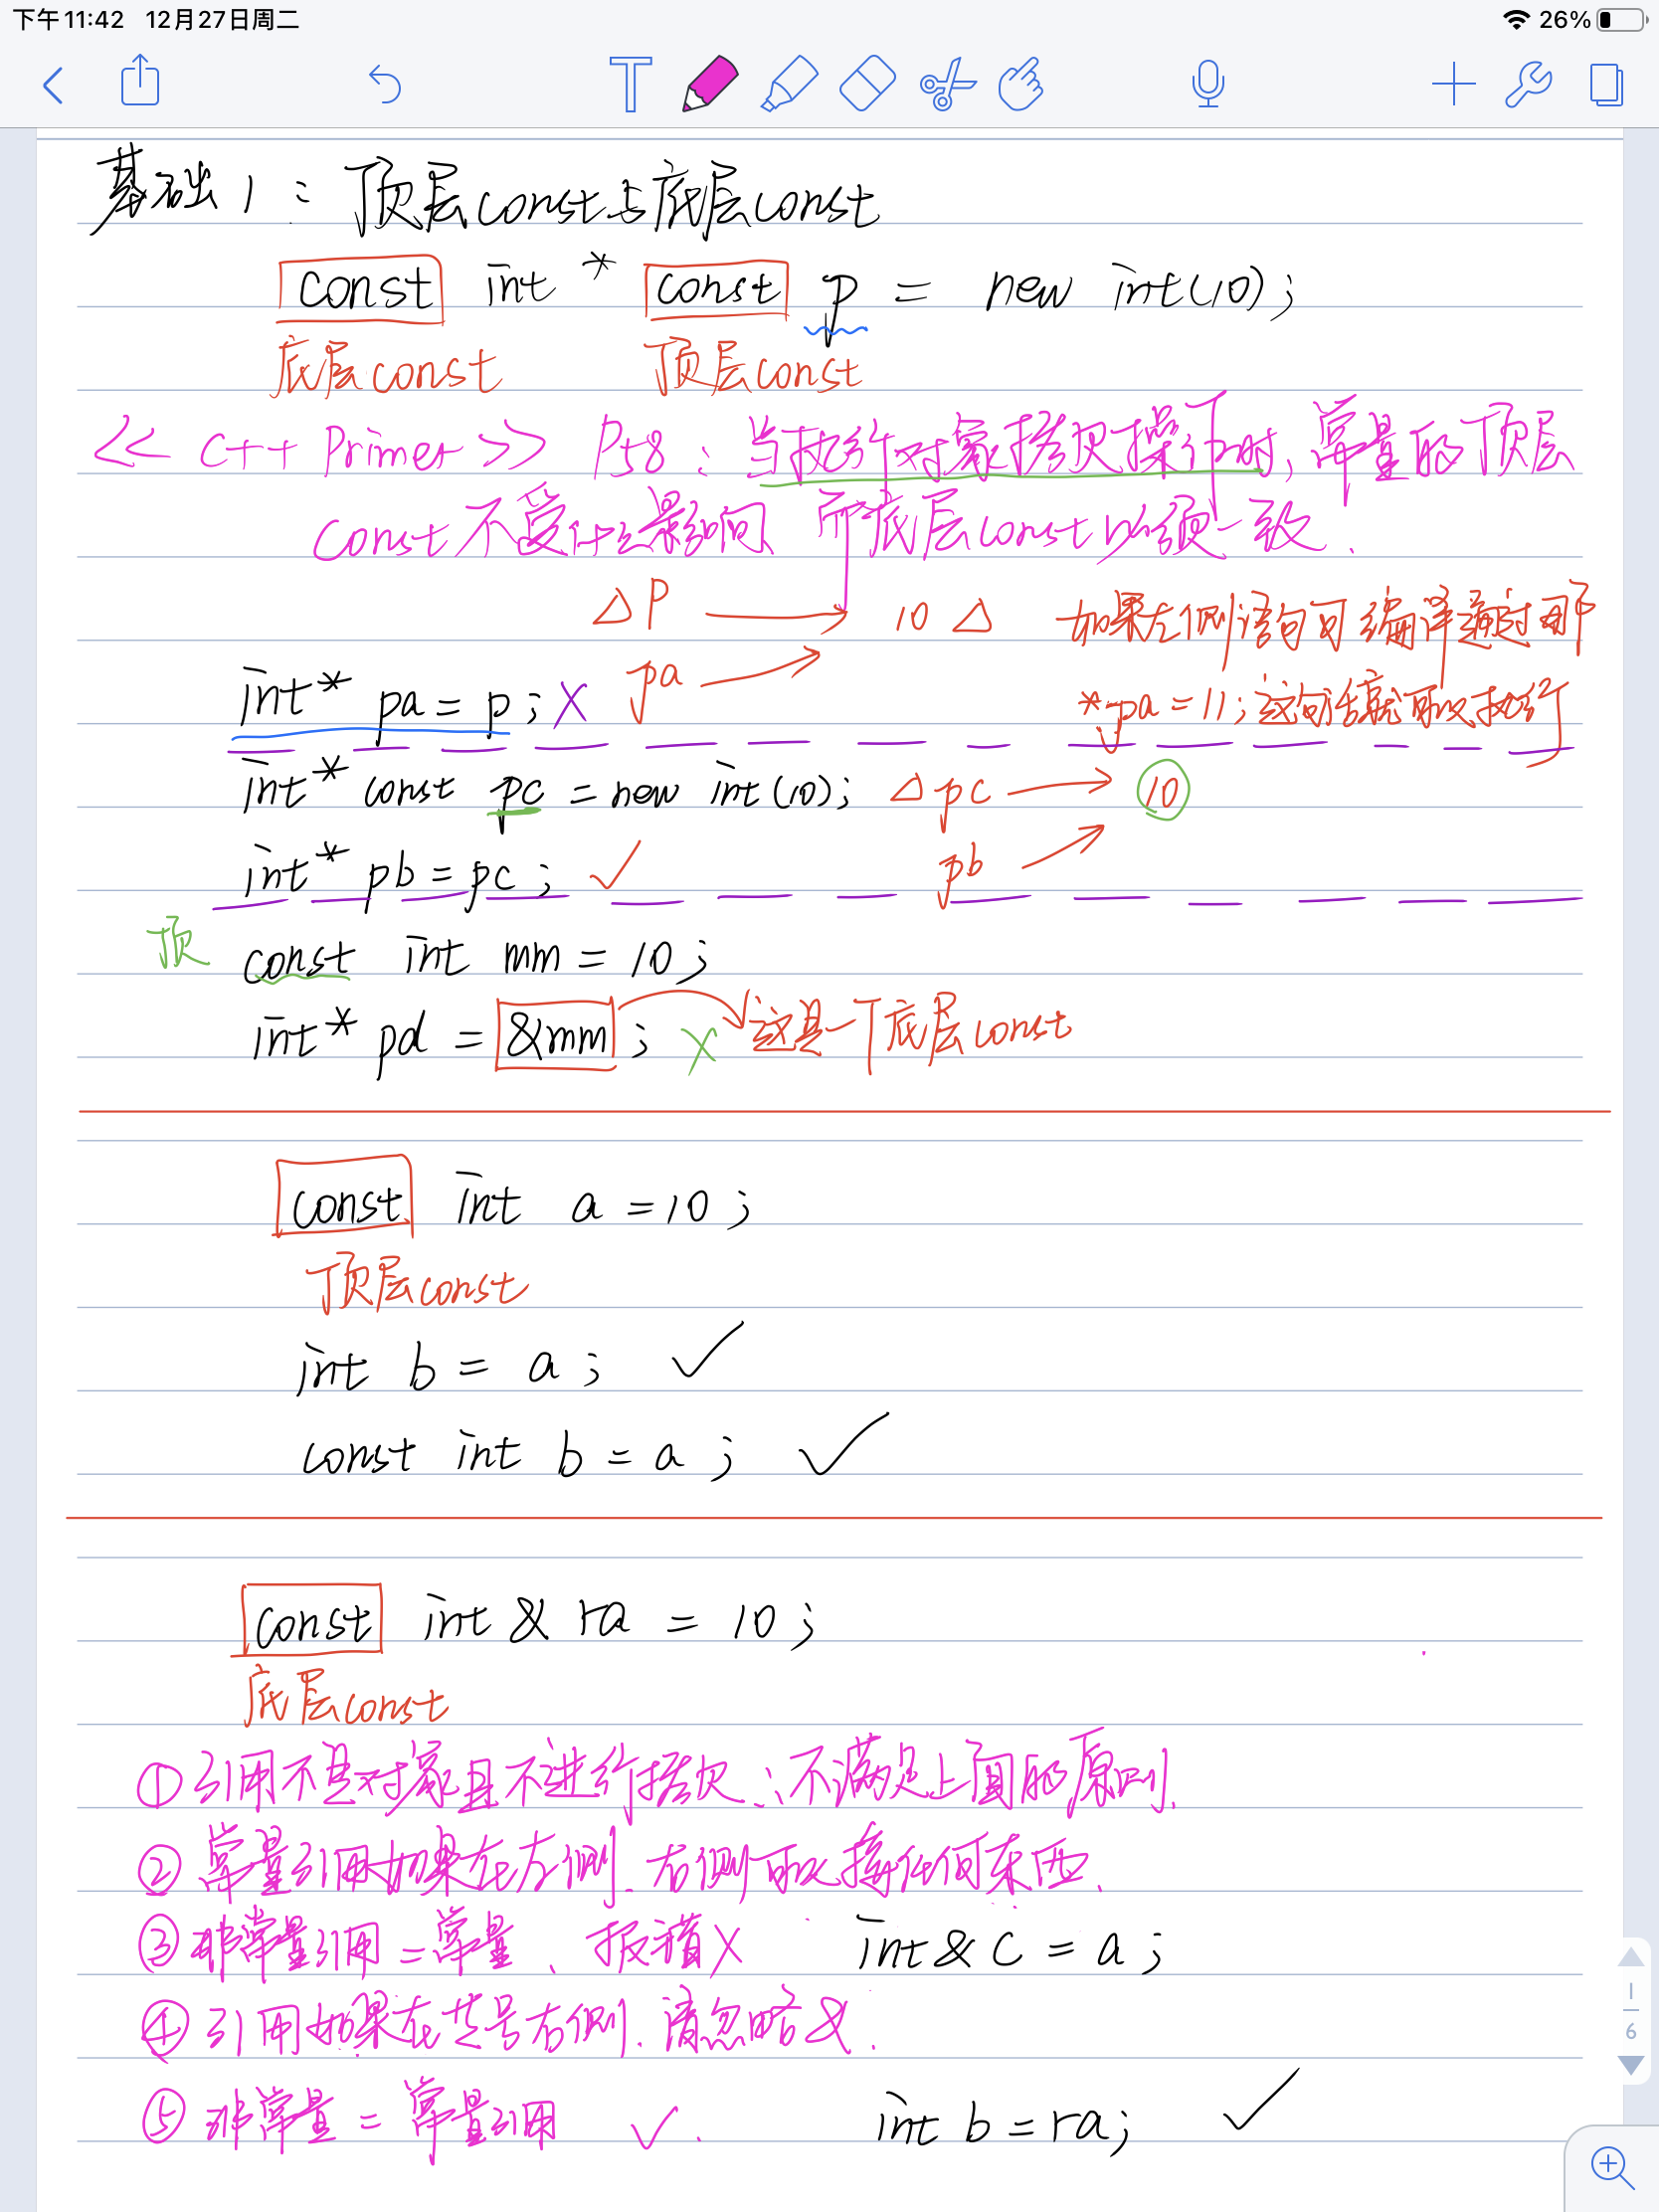 下午11:42 12月27日周二 26%
基础1:顶层const与底层const
const int * const p = new int(10);
底层const 顶层const
<< C++ Primer >> P58:当执行对象拷贝操作时,常量的顶层
const不受什么影响、而底层const必须一致.
△ P → 10 △ 如果左侧语句可编译通过那
int* pa = p; X pa → *pa = 11;这句话就可以执行
int* const pc = new int(10); △ pc → 10
int* pb = pc; ✓ pb →
顶 const int mm = 10;
int* pd = &mm; X 这是一个底层const
const int a = 10;
顶层const
int b = a; ✓
const int b = a; ✓
const int & ra = 10;
底层const
①引用不是对象且不进行拷贝∴不满足上面的原则.
②常量引用如果在左侧、右侧可以接任何东西.
③非常量引用=常量、报错X int& c = a;
④引用如果在等号右侧、请忽略&.
⑤非常量=常量引用 ✓. int b = ra; ✓
1
6